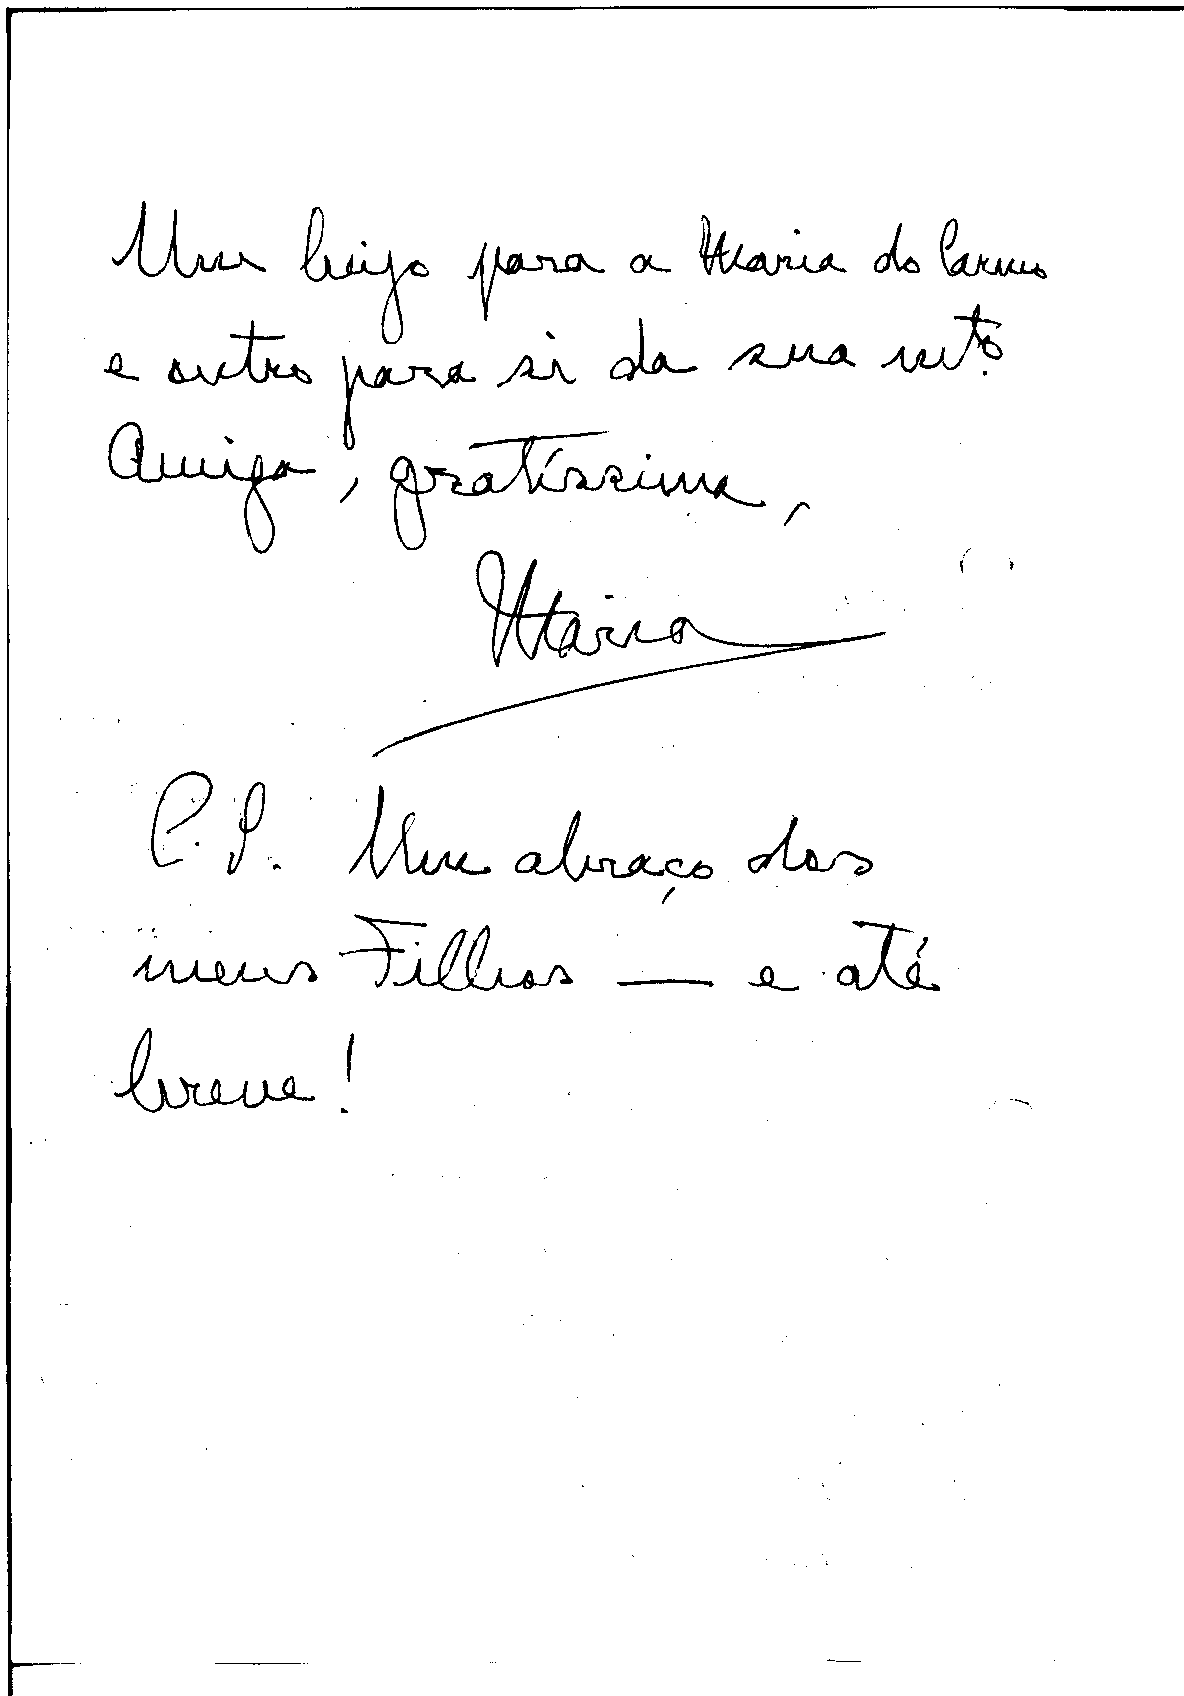 Um beijo para a Maria do Carmo
e outro para si da sua mtº.
Amiga, gratíssima,
Maria
P.S. Um abraço dos
meus Filhos — e até
breve!